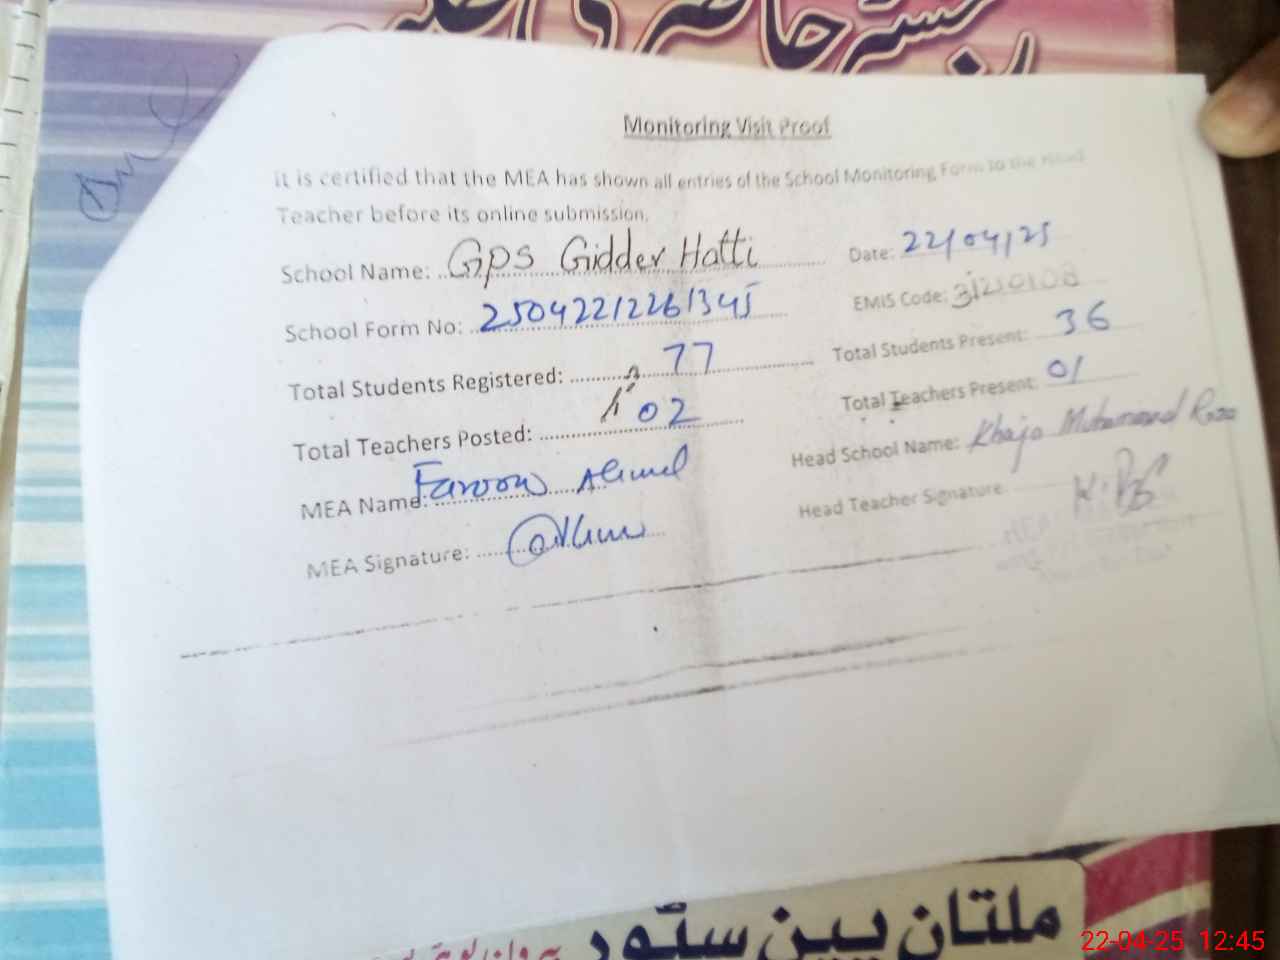 رجسٹر حاضری و داخلہ
Monitoring Visit Proof
It is certified that the MEA has shown all entries of the School Monitoring Form to the Head
Teacher before its online submission.
School Name: GPS Gidder Hatti Date: 22/04/25
School Form No: 25042212261345 EMIS Code: 31210108
Total Students Registered: 77 Total Students Present: 36
Total Teachers Posted: 02 Total Teachers Present: 01
MEA Name: Farooq Ahmed Head School Name: Khaja Muhammad Raza
MEA Signature: Head Teacher Signature
ملتان پین سٹور
22-04-25 12:45